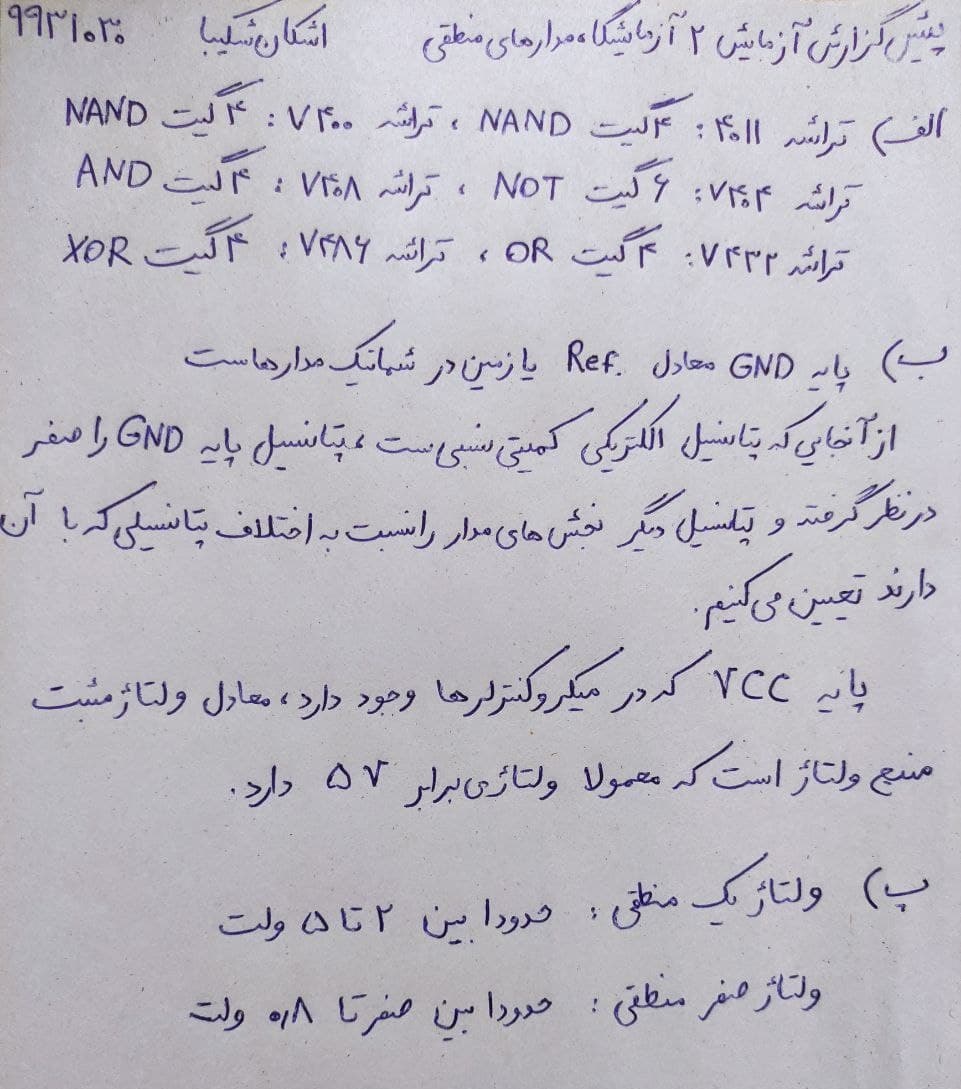 پیش گزارش آزمایش ۲ آزمایشگاه مدارهای منطقی اشکان شکیبا ۹۹۳۱۰۳۰
الف) تراشه ۴۰۱۱: ۴ گیت NAND ، تراشه ۷۴۰۰: ۴ گیت NAND
تراشه ۷۴۰۴: ۶ گیت NOT ، تراشه ۷۴۰۸: ۴ گیت AND
تراشه ۷۴۳۲: ۴ گیت OR ، تراشه ۷۴۸۶: ۴ گیت XOR
ب) پایه GND معادل Ref. یا زمین در شماتیک مدارهاست
از آنجایی که پتانسیل الکتریکی کمیتی نسبی ست، پتانسیل پایه GND را صفر
در نظر گرفته و پتانسیل دیگر بخش های مدار را نسبت به اختلاف پتانسیلی که با آن
دارند تعیین می کنیم.
پایه VCC که در میکروکنترلرها وجود دارد، معادل ولتاژ مثبت
منبع ولتاژ است که معمولا ولتاژی برابر ۵V دارد.
پ) ولتاژ یک منطقی: حدودا بین ۲ تا ۵ ولت
ولتاژ صفر منطقی: حدودا بین صفر تا ۰٫۸ ولت